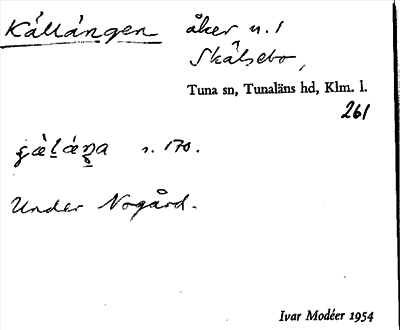 Källängen åker n. 1
Skälsebo,
Tuna sn, Tunaläns hd, Klm. l.
261
s. 170.
Under Nogård.
Ivar Modéer 1954